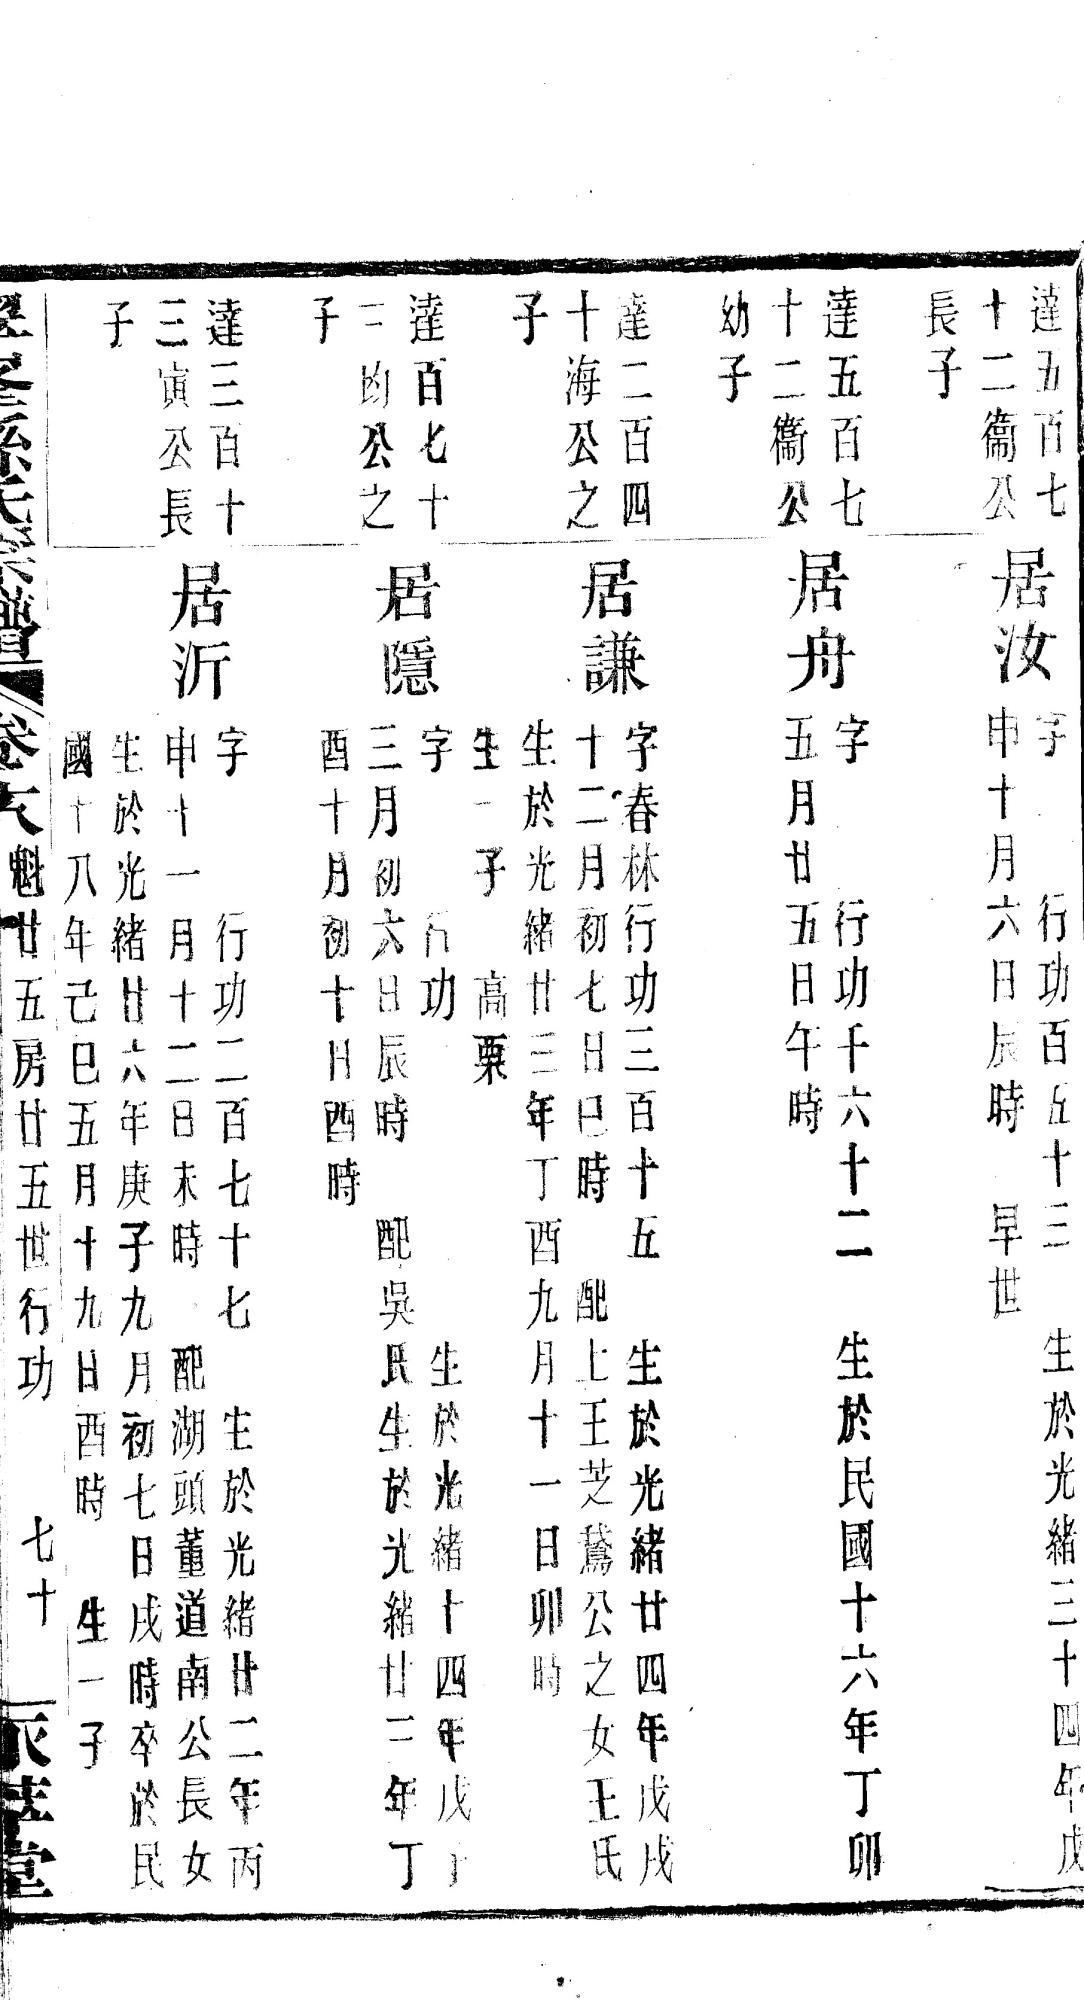 達五百七
十二衞公
長子
居汝
字 行功百五十三 生於光緒三十四年戊
申十月六日辰時 早世
達五百七
十二衞公
幼子
居舟
字 行功千六十二 生於民國十六年丁卯
五月廿五日午時
達二百四
十海公之
子
居謙
字春林行功三百十五 生於光緒廿四年戊戌
十二月初七日巳時 配上王芝鵞公之女王氏
生於光緒廿三年丁酉九月十一日卯時
生一子 高粟
達百七十
二均公之
子
居隱
字 行功 生於光緒十四年戊子
三月初六日辰時 配吳氏生於光緒廿三年丁
酉十月初十日酉時
達三百十
三寅公長
子
居沂
字 行功二百七十七 生於光緒廿二年丙
申十一月十二日未時 配湖頭董道南公長女
生於光緒廿六年庚子九月初七日戌時卒於民
國十八年己巳五月十九日酉時 生一子
孫氏宗譜 卷六 魁廿五房廿五世行功 七十 堂